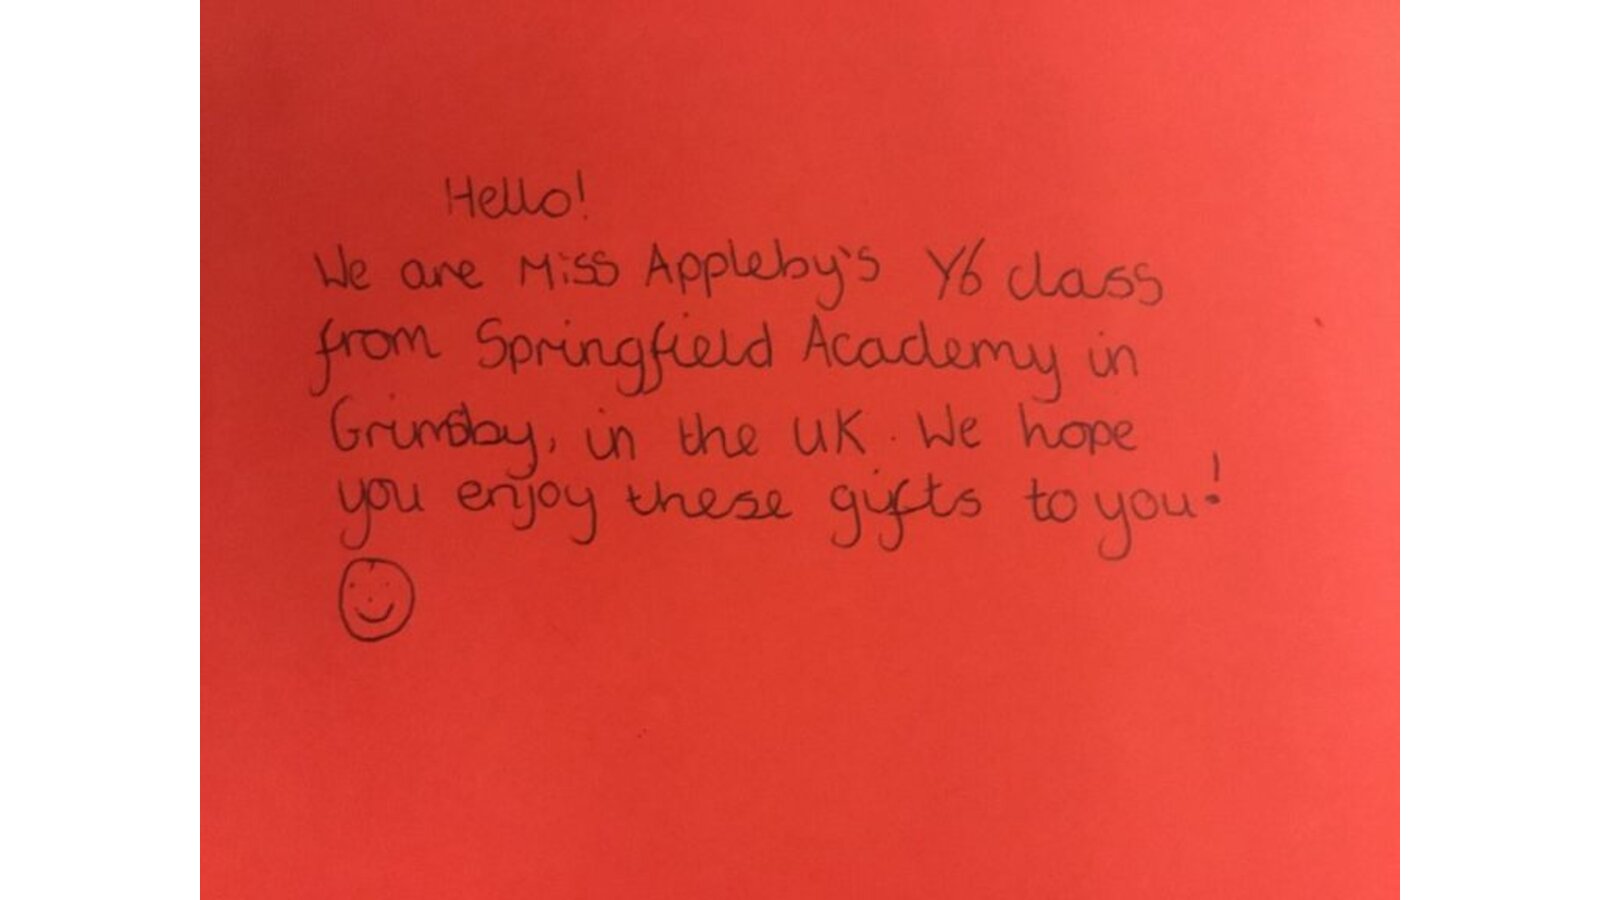 Hello!
We are Miss Appleby's Y6 class
from Springfield Academy in
Grimsby, in the UK. We hope
you enjoy these gifts to you!